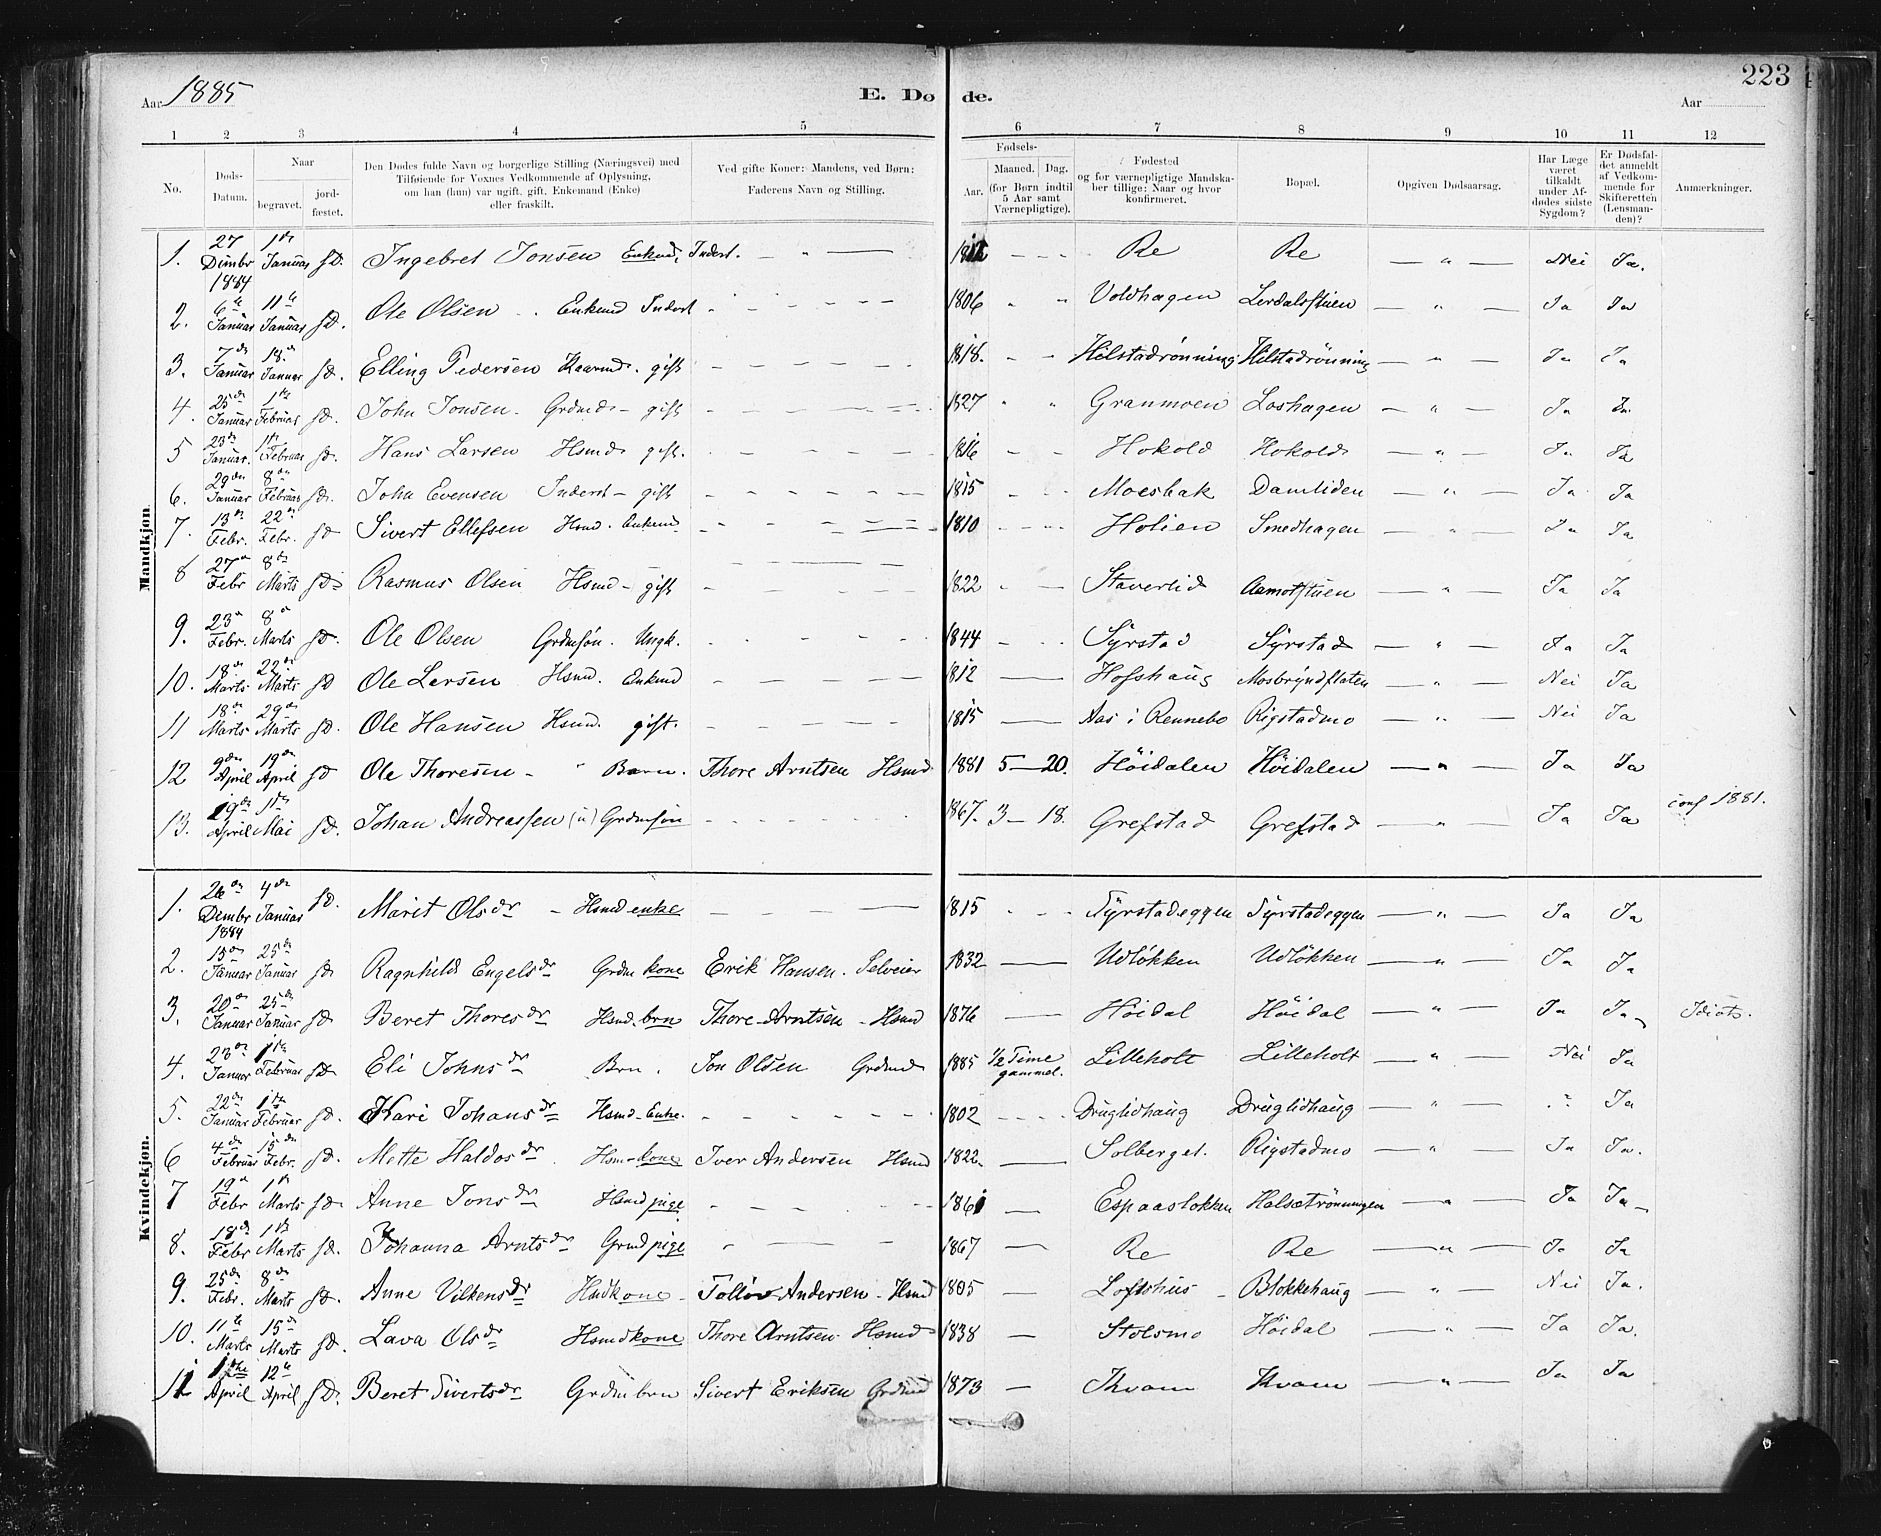 Aar 1885
E. Døde.
Aar
223
1 2 3 4 5 6 7 8 9 10 11 12
No.
Døds-Datum.
Naar
begravet.
jord-fæstet.
Den Dødes fulde Navn og borgerlige Stilling (Næringsvei) med
Tilføiende for Voxnes Vedkommende af Oplysning,
om han (hun) var ugift, gift, Enkemand (Enke)
eller fraskilt.
Ved gifte Koner: Mandens, ved Børn:
Faderens Navn og Stilling.
Fødsels-
Aar.
Maaned. Dag.
(for Børn indtil
5 Aar samt
Værnepligtige).
Fødested
og for værnepligtige Mandska-
ber tillige: Naar og hvor
konfirmeret.
Bopæl.
Opgiven Dødsaarsag.
Har Læge
været
tilkaldt
under Af-
dødes sidste
Sygdom?
Er Dødsfal-
det anmeldt
af Vedkom-
mende for
Skifteretten
(Lensman-
den)?
Anmerkninger.
Mandkjøn.
1. 27 Dmbr 1884 1ste Januar sD. Ingebret Jonsen Enkmd, Inderst. — " — Re Re — " — Nei Ja.
2. 6te Januar 11te Januar sD. Ole Olsen Enkmd Inderst 1806 Voldhagen Lerdalsstuen — " — Ja Ja
3. 7de Januar 18de Januar sD. Elling Pedersen Kaarmd. gift 1818. Hilstadrønning Hilstadrønning — " — Ja Ja
4. 25de Januar 1ste Februar sD. John Jonsen. Grdmd – gift 1827 Granmoen Loshagen — " — Ja Ja.
5 23de Januar. 1ste Februar sD. Hans Larsen Hsmd gift. 1816 Hokold Hokold — " — Ja Ja
6. 29de Januar 8de Februar sD. John Evensen Inderst – gift 1815 Moesbak Damliden — " — Ja Ja
7. 13de Febr. 22de Febr. sD Sivert Ellefsen Hsmd. Enkemd 1810 Holien Smedhagen — " — Ja Ja
8 27de Febr 8de Marts sD Rasmus Olsen Hsmd – gift 1822 Staverlid Aamotstuen — " — Ja Ja
9. 23de Febr. 8de Marts sD. Ole Olsen Grdmsøn. Ungk. 1844 Syrstad Syrstad — " — Ja Ja
10. 18de Marts 22de Marts sD Ole Larsen Hsmd. Enkmd 1812 — Hofshaug Mosbryndflaten — " — Nei Ja
11 18de Marts 29de Marts sD. Ole Hansen Hsmd. gift. 1815 — Aas i Rennebo Rigstadmo — " — Nei Ja
12 9de April 19de April sD Ole Thoresen – " Barn. Thore Arntsen Hsmd 1881 5 — 20. Höidalen Höidalen — " — Ja Ja
13. 19de April 1ste Mai sD. Johan Andreassen (u) Grdmsøn 1867. 3 — 18. Grefstad Grefstad — " — Ja Ja conf 1881.
Kvindekjøn.
1. 26de Dembr 1884 4de Januar sD. Marit Olsdr – Hsmd enke 1815 Syrstadeggen Syrstadeggen — " — Ja Ja
2. 15de Januar 25de Januar sD Ragnhild Engelsdr Grdmkone Erik Hansen. Selveier 1832 — Udløkken Udløkken — " — Ja Ja
3. 20de Januar 25de Januar sD Beret Thoresdr Hsmd. brn Thore Arntsen – Hsmd 1876 — Höidal Höidal — " — Ja Ja Idiot.
4. 23de Januar 1ste Februar sD Eli Johnsdr Brn. Jon Olsen Grdmd 1885 1/2 Time gammel. Lilleholt Lilleholt — " — Nei Ja
5. 22de Januar 1ste Februar sD. Kari Johansdr Hsmd-Enke. 1802 Druglidhaug Druglidhaug — " — " Ja
6 4de Februar 15de Febr. sD. Mette Haldosdr Hsm-kone Iver Andersen Hsmd 1822 — Solberget. Rigstadmo — " — Ja Ja.
7 19de Febr 1ste Marts sD Anne Jonsdr Hsmd pige 1861 — Espaasløkken Halsetrönningen — " — Ja Ja
8. 18de Febr 1ste Marts sD. Johanna Arntsdr Grmd pige 1867 — Re Re — " — Ja Ja
9. 25de Febr. 8de Marts sD. Anne Vilkensdr Hsdkone – Folløv Andersen – Hsmd 1805 — Loftshus – Blokkehaug — " — Nei Ja.
10. 11te Marts 15de Marts sD. Lava Olsdr Hsmdkone Thore Arntsen. Hsmd 1838 — Stolsmo Höidal — " — Ja Ja.
11 April 12te April sD. Beret Sivertsdr Grdmbrn Sivert Eriksen Grdmd 1873 — Kvam Kvam — " — Ja Ja